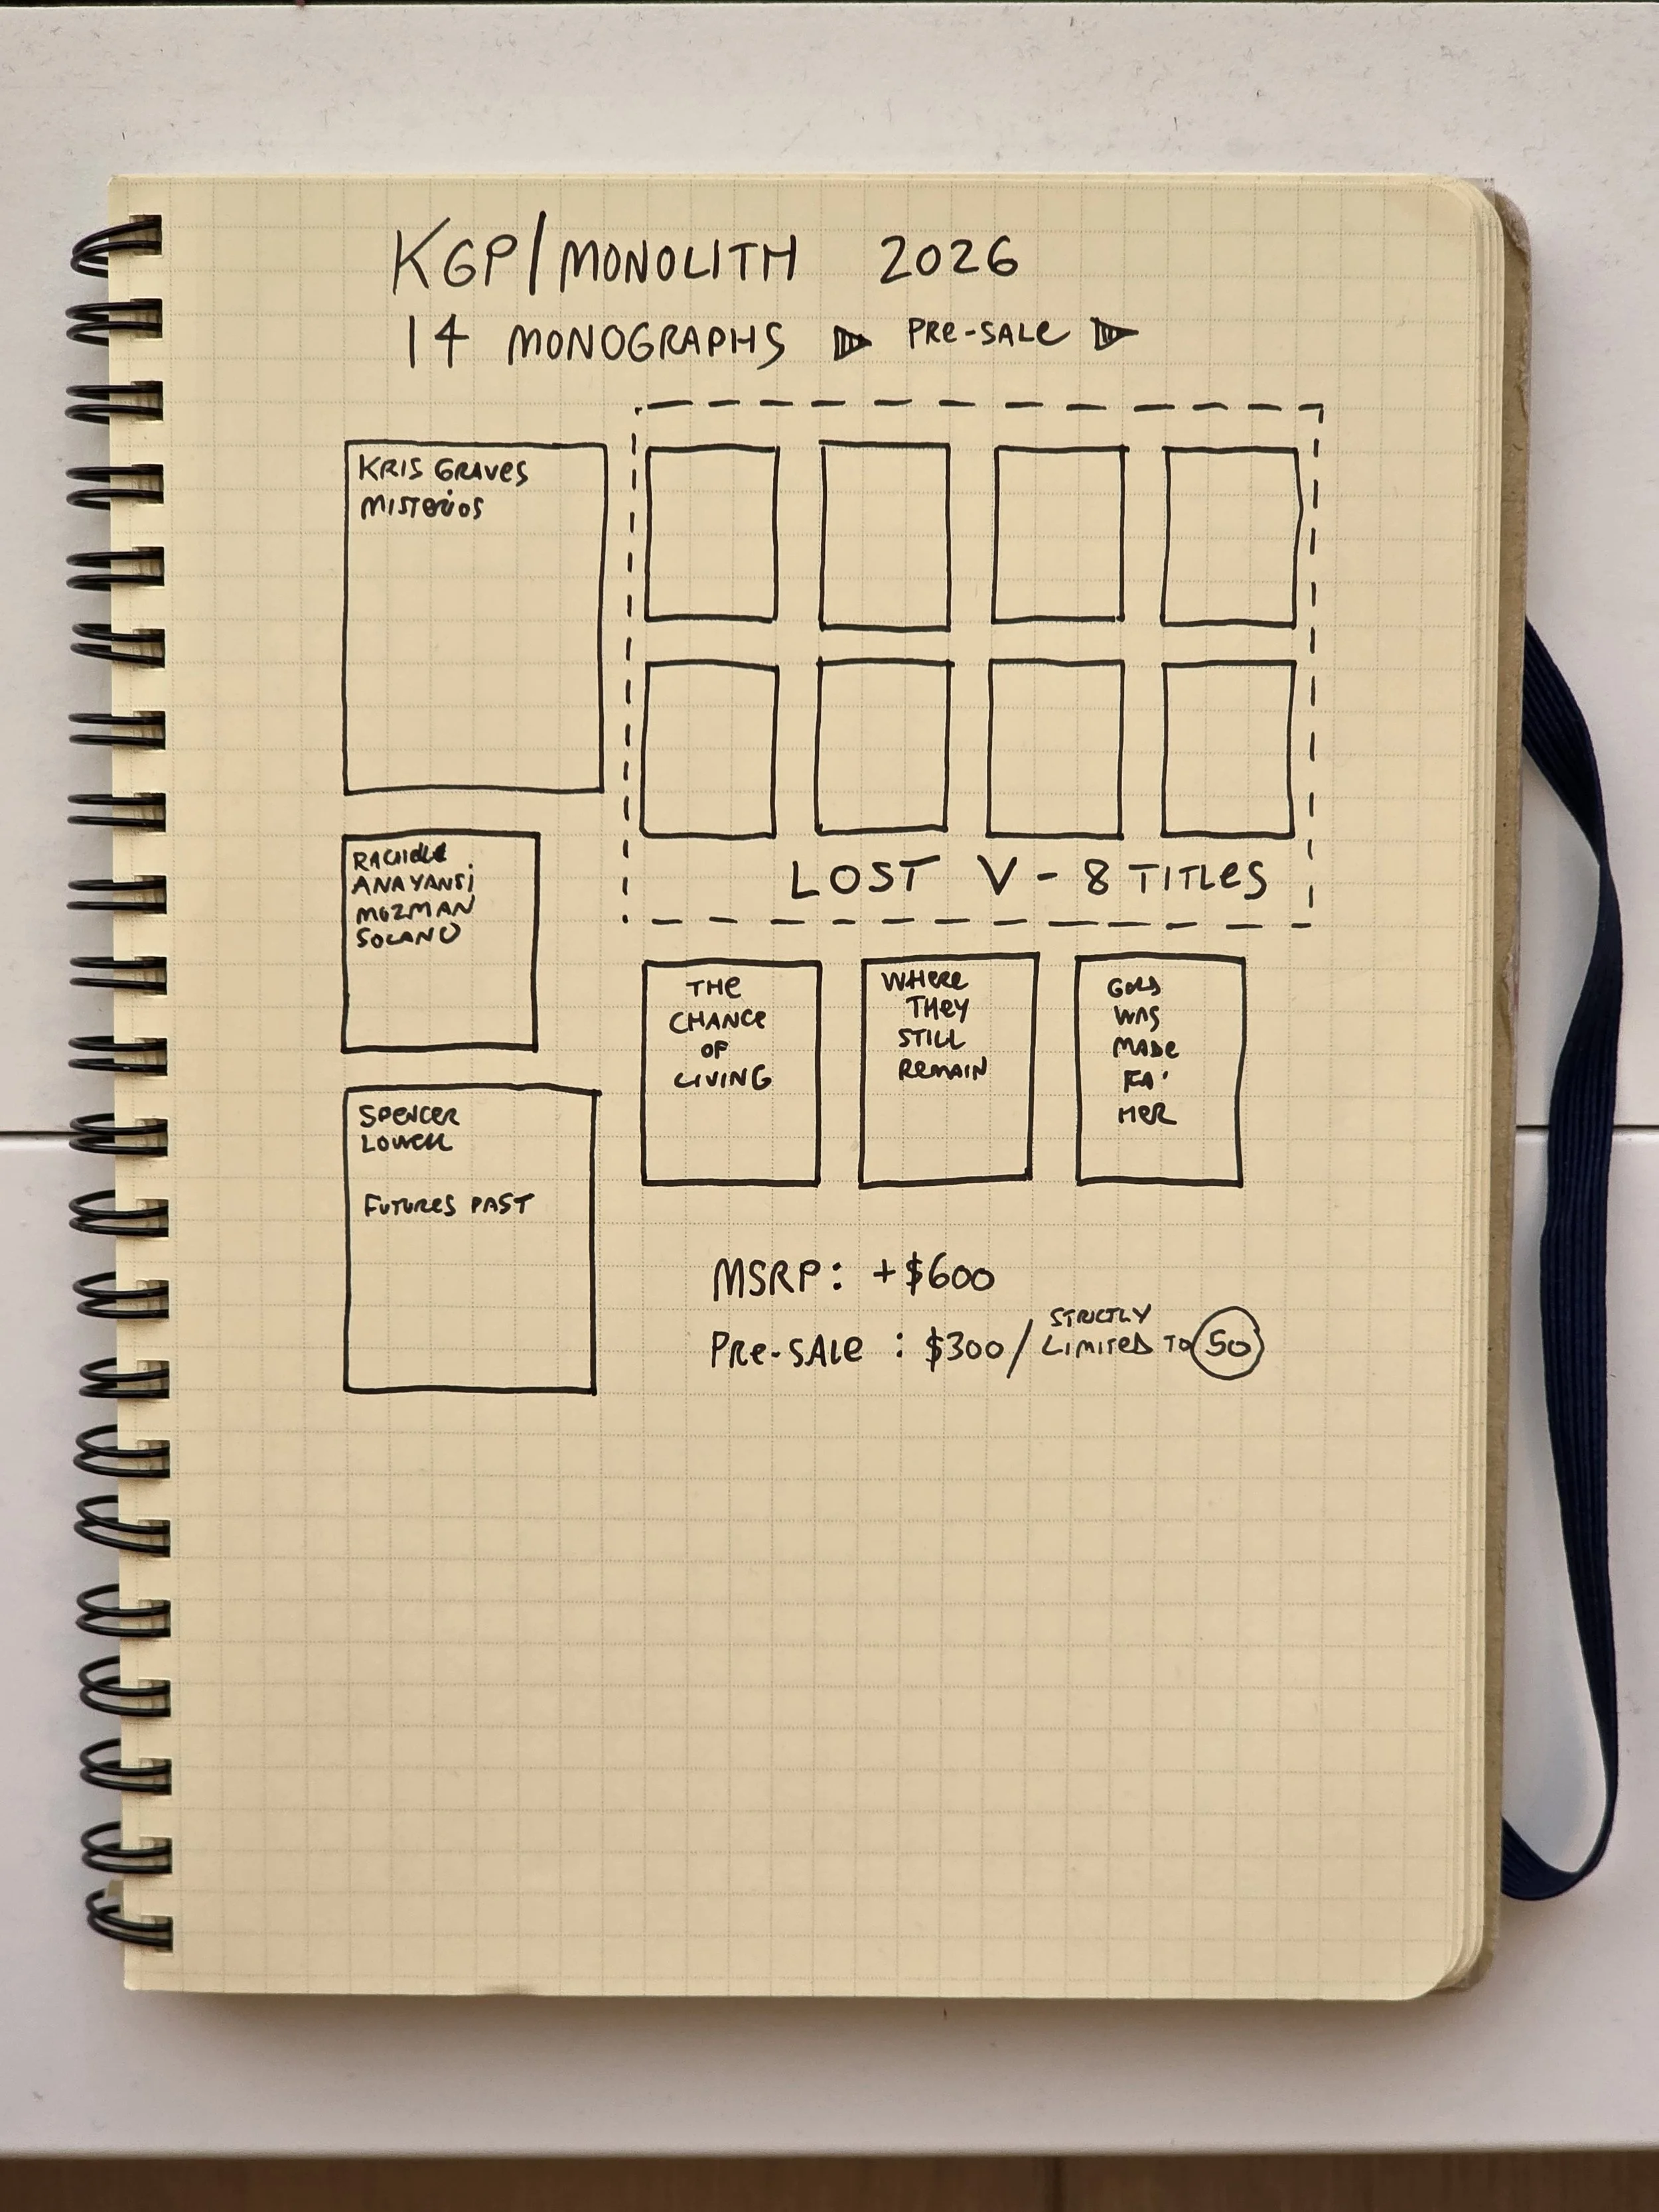 KGP/MONOLITH 2026
14 MONOGRAPHS ▷ PRE-SALE ▷
KRIS GRAVES
MISTERIOS
RACHELLE
ANAYANSI
MOZMAN
SOLANO
SPENCER
LOWELL
FUTURES PAST
LOST V - 8 TITLES
THE
CHANCE
OF
LIVING
WHERE
THEY
STILL
REMAIN
GOLD
WAS
MADE
FA'
HER
MSRP: +$600
PRE-SALE : $300 / STRICTLY LIMITED TO 50